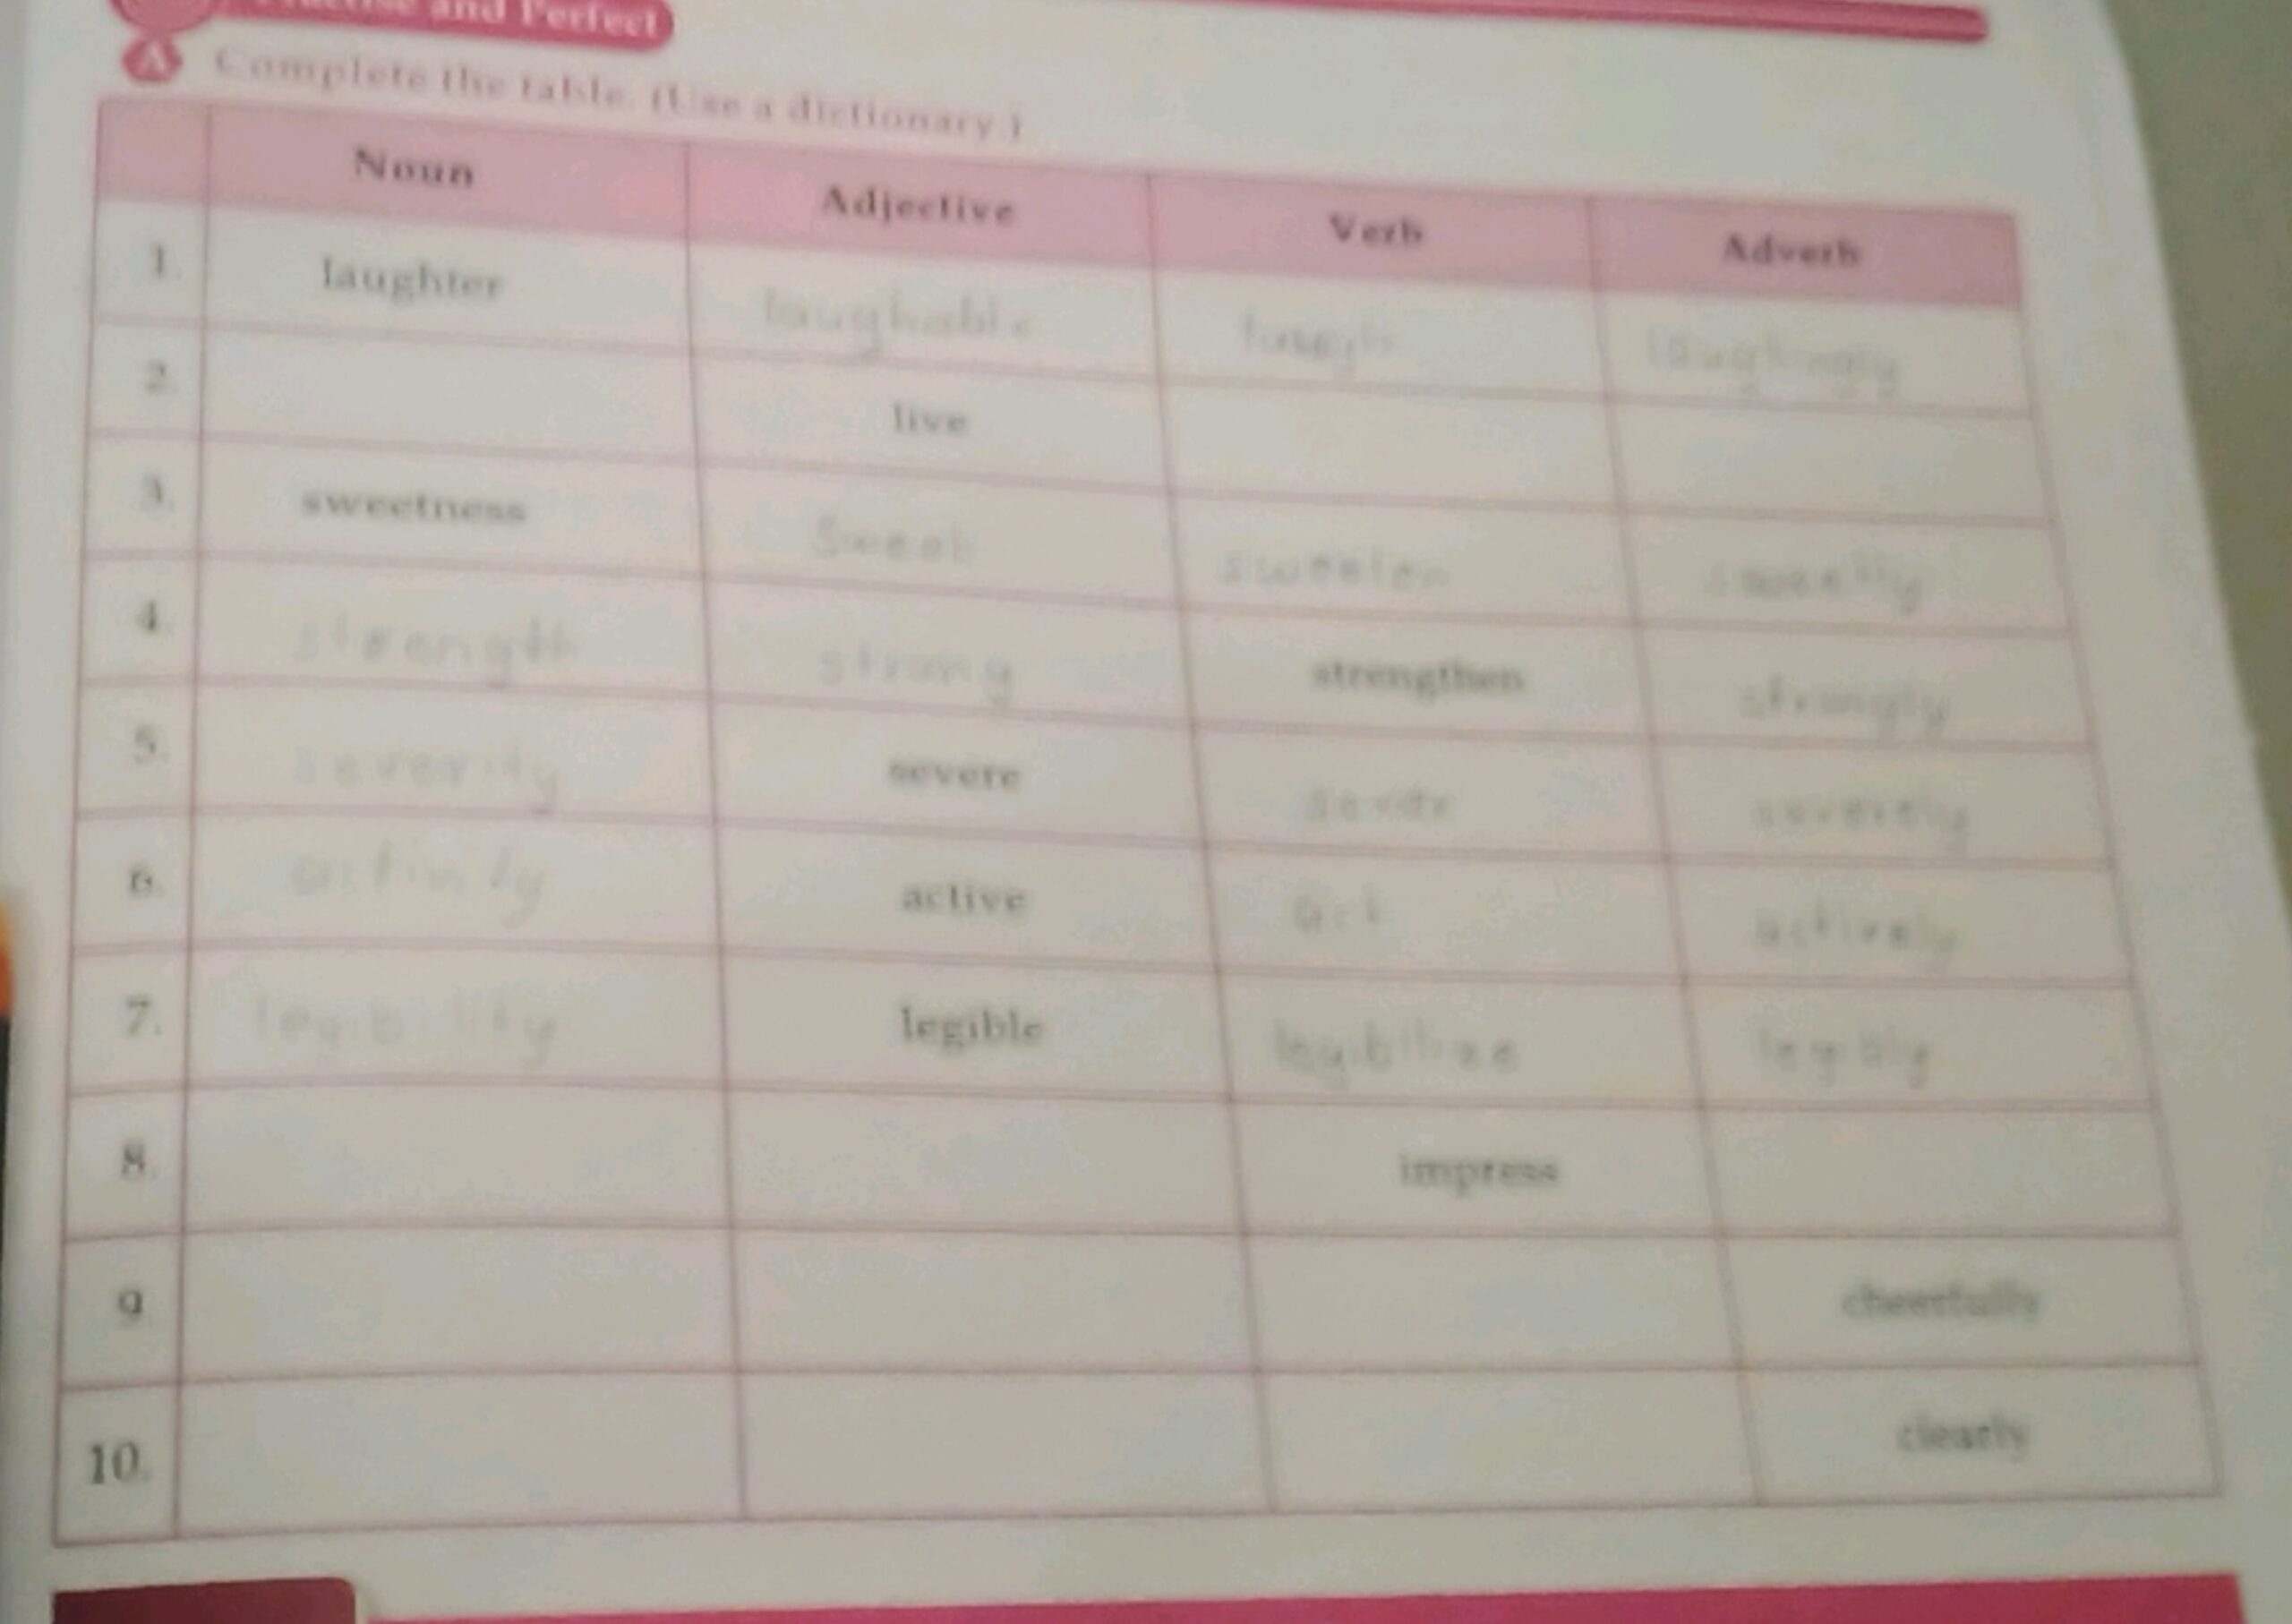 and Perfect
A Complete the table. (Use a dictionary.)
Noun Adjective Verb Adverb
1. laughter laughable laugh laughingly
2. live
3. sweetness Sweet sweeten sweetly
4. strength strong strengthen strongly
5. severity severe severely
6. activity active act actively
7. legibility legible legibilize legibly
8. impress
9 cheerfully
10. clearly